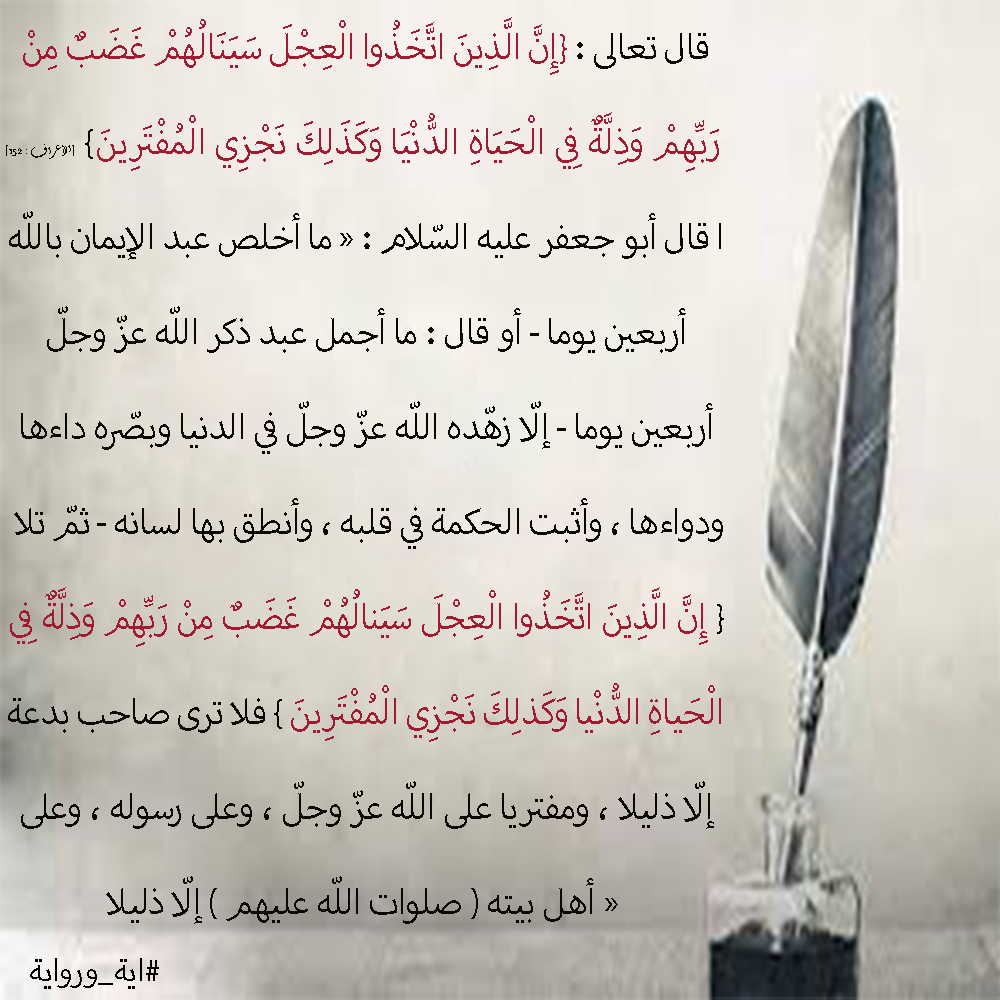 قال تعالى : {إِنَّ الَّذِينَ اتَّخَذُوا الْعِجْلَ سَيَنَالُهُمْ غَضَبٌ مِنْ
رَبِّهِمْ وَذِلَّةٌ فِي الْحَيَاةِ الدُّنْيَا وَكَذَلِكَ نَجْزِي الْمُفْتَرِينَ} [الأعراف : 152]
ا قال أبو جعفر عليه السّلام : « ما أخلص عبد الإيمان باللّه
أربعين يوما - أو قال : ما أجمل عبد ذكر اللّه عزّ وجلّ
أربعين يوما - إلّا زهّده اللّه عزّ وجلّ في الدنيا وبصّره داءها
ودواءها ، وأثبت الحكمة في قلبه ، وأنطق بها لسانه - ثمّ تلا
{ إِنَّ الَّذِينَ اتَّخَذُوا الْعِجْلَ سَيَنالُهُمْ غَضَبٌ مِنْ رَبِّهِمْ وَذِلَّةٌ فِي
الْحَياةِ الدُّنْيا وَكَذلِكَ نَجْزِي الْمُفْتَرِينَ } فلا ترى صاحب بدعة
إلّا ذليلا ، ومفتريا على اللّه عزّ وجلّ ، وعلى رسوله ، وعلى
« أهل بيته ( صلوات اللّه عليهم ) إلّا ذليلا
#اية_ورواية